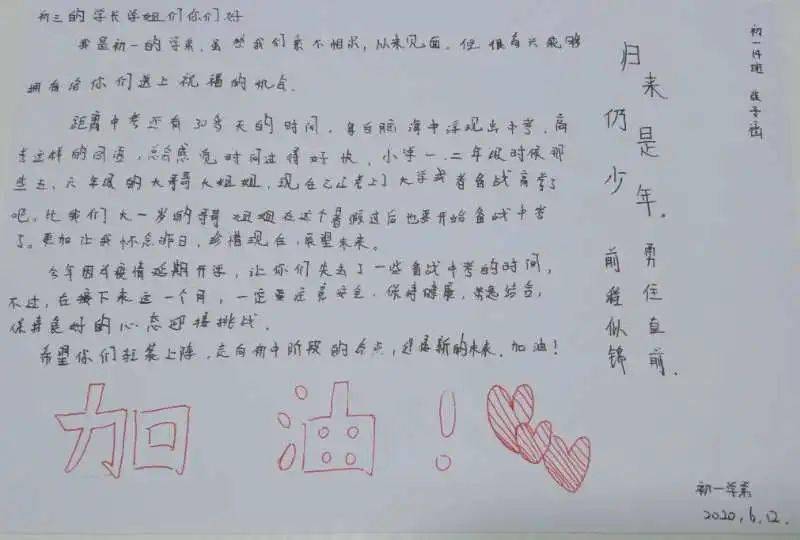 初三的学长学姐们你们好
我是初一的学弟，虽然我们素不相识，从未见面，但很高兴能够
拥有给你们送上祝福的机会。
距离中考还有30多天的时间，每当脑海中浮现出中考，高
考这样的词语，总会感觉时间过得好快，小学一、二年级时候那
些五、六年级的大哥哥大姐姐，现在已经考上了大学或者备战高考了
吧。比我们大一岁的哥哥姐姐在这个暑假过后也要开始备战中考
了。更加让我怀念昨日，珍惜现在，展望未来。
今年因为疫情延期开学，让你们失去了一些备战中考的时间，
不过，在接下来这一个月，一定要注意安全，保持健康，劳逸结合，
保持良好的心态迎接挑战。
希望你们轻装上阵，走向初中阶段的终点，迎接新的未来。加油！
加油！
归来仍是少年。
勇往直前
前程似锦.
初一学弟
2020.6.12.